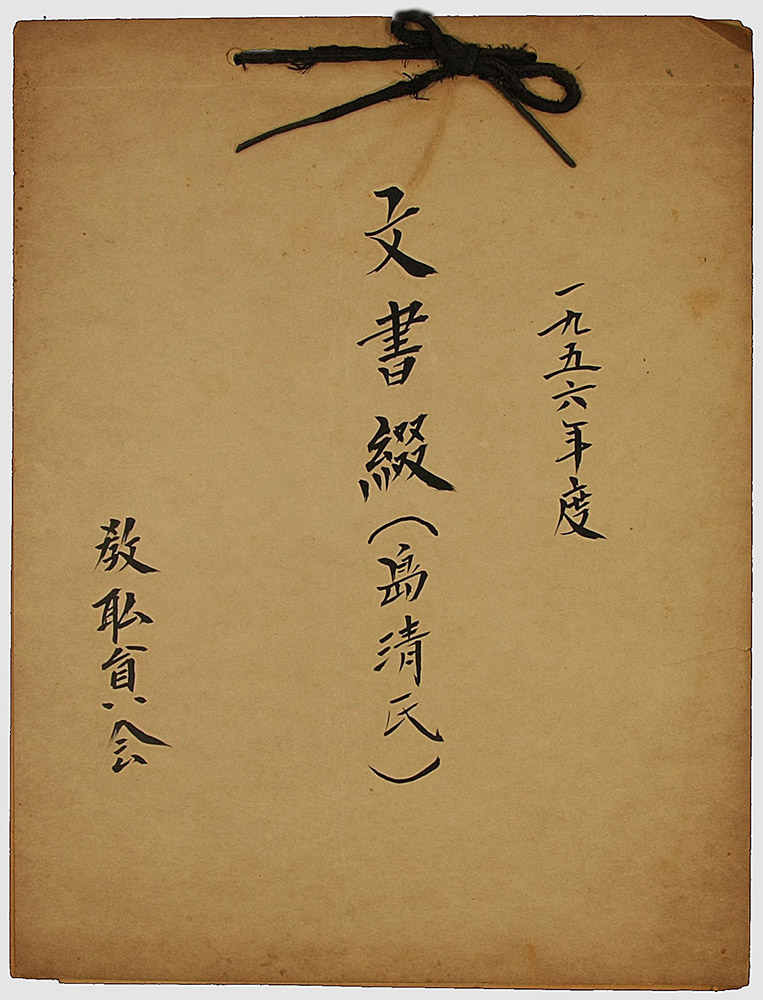 一九五六年度
文書綴(島清氏)
教耺員会